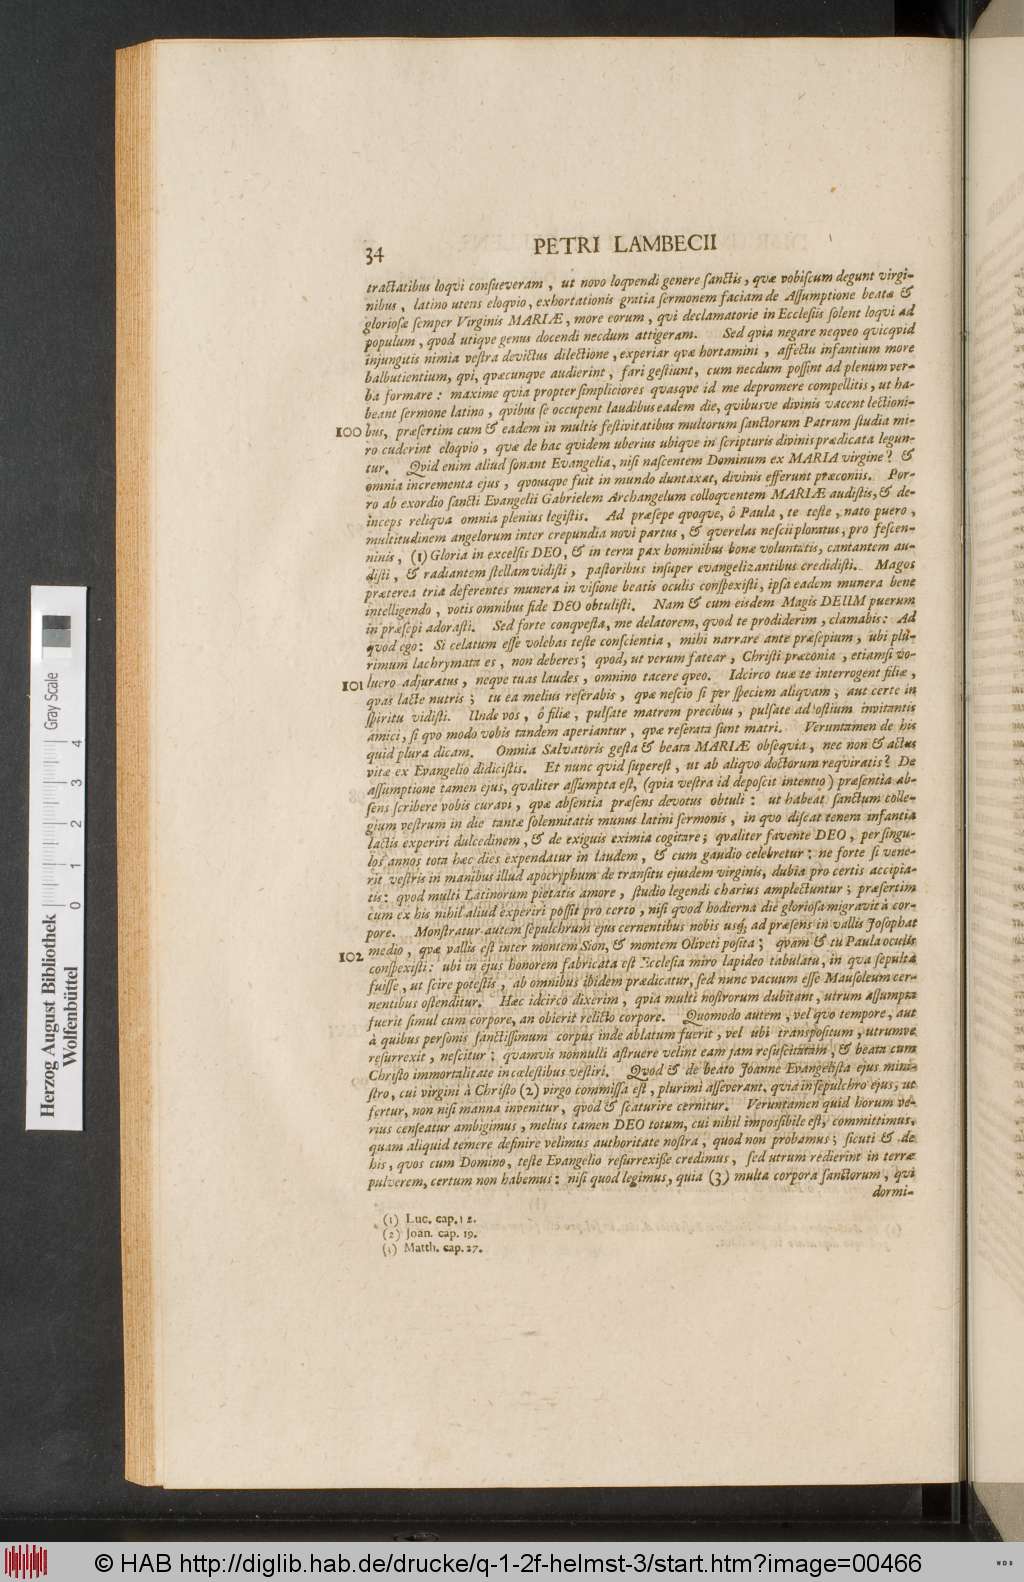 34 PETRI LAMBECII
tractatibus loqvi consueveram, ut novo loqvendi genere sanctis, qvæ vobiscum degunt virgi-
nibus, latino utens eloqvio, exhortationis gratia sermonem faciam de Assumptione beatæ &
gloriosæ semper Virginis MARIÆ, more eorum, qvi declamatorie in Ecclesiis solent loqvi ad
populum, qvod utiqve genus docendi necdum attigeram. Sed qvia negare neqveo qvicqvid
injungitis nimia vestra devictus dilectione, experiar qvæ hortamini, affectu infantium more
balbutientium, qvi, qvæcunqve audierint, fari gestiunt, cum necdum possint ad plenum ver-
ba formare: maxime qvia propter simpliciores qvasqve id me depromere compellitis, ut ha-
beant sermone latino, qvibus se occupent laudibus eadem die, qvibusve divinis vacent lectioni-
100 bus, præsertim cum & eadem in multis festivitatibus multorum sanctorum Patrum studia mi-
ro cuderint eloqvio, qvæ de hac qvidem uberius ubiqve in scripturis divinis prædicata legun-
tur. Qvid enim aliud sonant Evangelia, nisi nascentem Dominum ex MARIA virgine? &
omnia incrementa ejus, qvousqve fuit in mundo duntaxat, divinis efferunt præconiis. Por-
ro ab exordio sancti Evangelii Gabrielem Archangelum colloqventem MARIÆ audistis, & de-
inceps reliqva omnia plenius legistis. Ad præsepe qvoqve, ô Paula, te teste, nato puero,
multitudinem angelorum inter crepundia novi partus, & qverelas nescii ploratus, pro fescen-
ninis, (1) Gloria in excelsis DEO, & in terra pax hominibus bonæ voluntatis, cantantem au-
disti, & radiantem stellam vidisti, pastoribus insuper evangelizantibus credidisti. Magos
præterea tria deferentes munera in visione beatis oculis conspexisti, ipsa eadem munera bene
intelligendo, votis omnibus fide DEO obtulisti. Nam & cum eisdem Magis DEUM puerum
in præsepi adorasti. Sed forte conqvesta, me delatorem, qvod te prodiderim, clamabis: Ad
qvod ego: Si celatum esse volebas teste conscientia, mihi narrare ante præsepium, ubi plu-
rimum lachrymata es, non deberes; qvod, ut verum fatear, Christi præconia, etiamsi vo-
101 luero adjuratus, neqve tuas laudes, omnino tacere qveo. Idcirco tuæ te interrogent filiæ,
qvas lacte nutris; tu ea melius reserabis, qvæ nescio si per speciem aliqvam, aut certe in
spiritu vidisti. Unde vos, ô filiæ, pulsate matrem precibus, pulsate ad ostium invitantis
amici, si qvo modo vobis tandem aperiantur, qvæ reserata sunt matri. Veruntamen de his
quid plura dicam. Omnia Salvatoris gesta & beata MARIÆ obseqvia, nec non & actus
vitæ ex Evangelio didicistis. Et nunc qvid superest, ut ab aliqvo doctorum reqviratis? De
assumptione tamen ejus, qvaliter assumpta est, (qvia vestra id deposcit intentio) præsentia ab-
sens scribere vobis curavi, qvæ absentia præsens devotus obtuli: ut habeat sanctum colle-
gium vestrum in die tantæ solennitatis munus latini sermonis, in qvo discat tenera infantia
lactis experiri dulcedinem, & de exiguis eximia cogitare; qvaliter favente DEO, per singu-
los annos tota hæc dies expendatur in laudem, & cum gaudio celebretur: ne forte si vene-
rit vestris in manibus illud apocryphum de transitu ejusdem virginis, dubia pro certis accipia-
tis: qvod multi Latinorum pietatis amore, studio legendi charius amplectuntur; præsertim
cum ex his nihil aliud experiri possit pro certo, nisi qvod hodierna die gloriosa migravit à cor-
pore. Monstratur autem sepulchrum ejus cernentibus nobis usq; ad præsens in vallis Josophat
102 medio, qvæ vallis est inter montem Sion, & montem Oliveti posita; qvam & tu Paula oculis
conspexisti: ubi in ejus honorem fabricata est Ecclesia miro lapideo tabulatu, in qva sepulta
fuisse, ut scire potestis, ab omnibus ibidem prædicatur, sed nunc vacuum esse Mausoleum cer-
nentibus ostenditur. Hæc idcirco dixerim, qvia multi nostrorum dubitant, utrum assumpta
fuerit simul cum corpore, an obierit relicto corpore. Quomodo autem, vel qvo tempore, aut
à quibus personis sanctissimum corpus inde ablatum fuerit, vel ubi transpositum, utrumve
resurrexit, nescitur: qvamvis nonnulli astruere velint eam jam resuscitatam, & beata cum
Christo immortalitate in cœlestibus vestiri. Qvod & de beato Joanne Evangelista ejus mini-
stro, cui virgini à Christo (2) virgo commissa est, plurimi asseverant, qvia in sepulchro ejus, ut
fertur, non nisi manna invenitur, qvod & scaturire cernitur. Veruntamen quid horum ve-
rius censeatur ambigimus, melius tamen DEO totum, cui nihil impossibile est, committimus,
quam aliquid temere definire velimus authoritate nostra, quod non probamus; sicuti & de
his, qvos cum Domino, teste Evangelio resurrexisse credimus, sed utrum redierint in terræ
pulverem, certum non habemus: nisi quod legimus, quia (3) multa corpora sanctorum, qvi
dormi-
(1) Luc. cap. 12.
(2) Joan. cap. 19.
(3) Matth. cap. 27.
Herzog August Bibliothek
Wolfenbüttel
0 1 2 3 4
Gray Scale
© HAB http://diglib.hab.de/drucke/q-1-2f-helmst-3/start.htm?image=00466